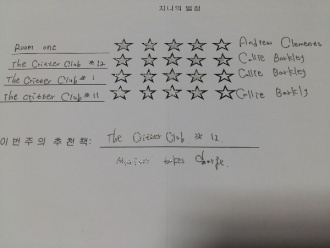 지나의 별점
Room one ☆☆☆☆☆ Andrew Clements
The Critter Club #12 ☆☆☆☆☆ Callie Barkley
The Critter Club #1 ☆☆☆☆☆ Callie Barkley
The Critter Club #11 ☆☆☆☆☆ Callie Barkley
이번주의 추천책: The Critter Club #12
takes charge.